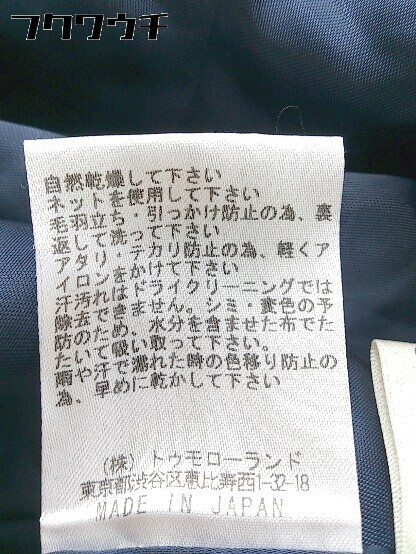 フクワウチ
自然乾燥して下さい
ネットを使用して下さい
毛羽立ち・引っかけ防止の為、裏
返して洗って下さい
アタリ・テカリ防止の為、軽くア
イロンをかけて下さい
汗汚れはドライクリーニングでは
除去できません。シミ・変色の予
防のため、水分を含ませた布でた
たいて汗を吸い取って下さい。
雨や汗で濡れた時の色移り防止の
為、早めに乾かして下さい
(株)トゥモローランド
東京都渋谷区恵比寿西1-32-18
MADE IN JAPAN